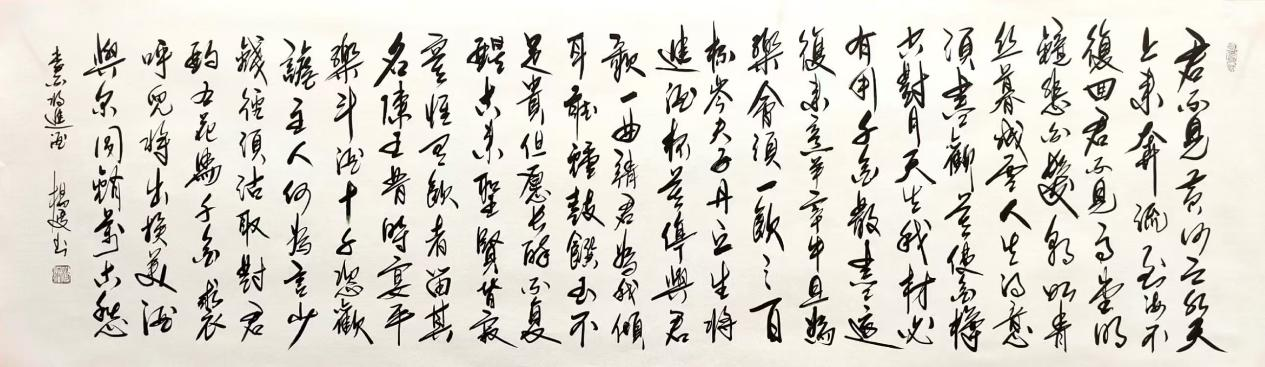 君不見黃河之水天
上来奔流到海不
復回君不見高堂明
鏡悲白髮朝如青
丝暮成雪人生得意
須盡歡莫使金樽
空對月天生我材必
有用千金散盡還
復来烹羊宰牛且為
樂會須一飲三百
杯岑夫子丹丘生将
進酒杯莫停與君
歌一曲請君為我傾
耳聽鐘鼓饌玉不
足貴但愿長醉不复
醒古来聖賢皆寂
寞惟有飲者留其
名陳王昔時宴平
樂斗酒十千恣歡
謔主人何為言少
錢徑須沽取對君
酌五花馬千金裘
呼兒将出換美酒
與尔同銷萬古愁
将進酒 楊书